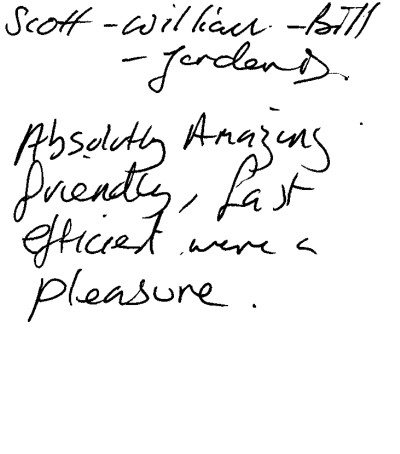 Scott - William - Bill
- Jordan D.
Absolutly Amazing
friendly, fast
efficient were a
pleasure.